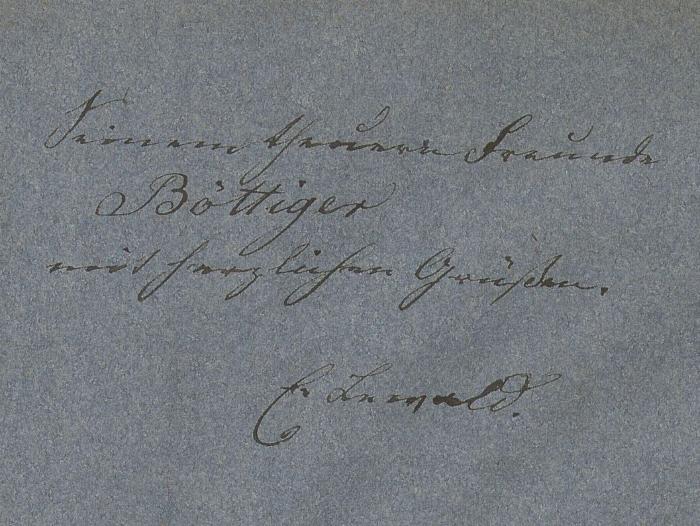 Seinem theuern Freunde
Böttiger
mit herzlichen Grüßen.
E. Lewald.